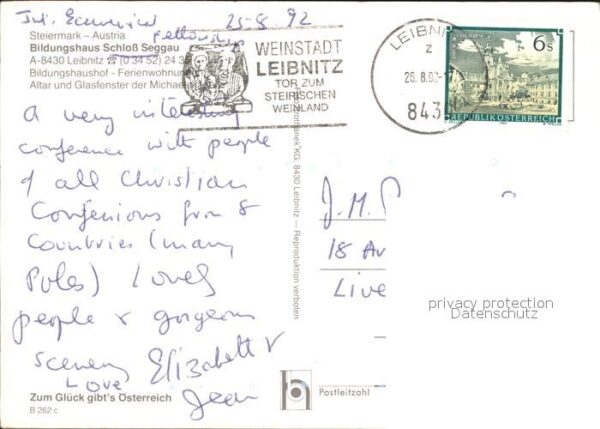 Int. Ecumenical 25-8.92
Fellowship
Steiermark – Austria
Bildungshaus Schloß Seggau
A-8430 Leibnitz ☎ (0 34 52) 24 35
Bildungshaushof - Ferienwohnun
Altar und Glasfenster der Michae
WEINSTADT
LEIBNITZ
TOR ZUM
STEIRISCHEN
WEINLAND
LEIBNITZ
z
26.8.92
843
6s
REPUBLIK ÖSTERREICH
A very interesting
conference with people
of all Christian
Confessions from 8
Countries (many
Poles) Lovely
people & gorgeous
scenery Elizabeth V
Love
Jean
KG, 8430 Leibnitz — Reproduktion verboten
J.M.
18 Av
Live
privacy protection
Datenschutz
Zum Glück gibt's Österreich
B 262 c
Postleitzahl